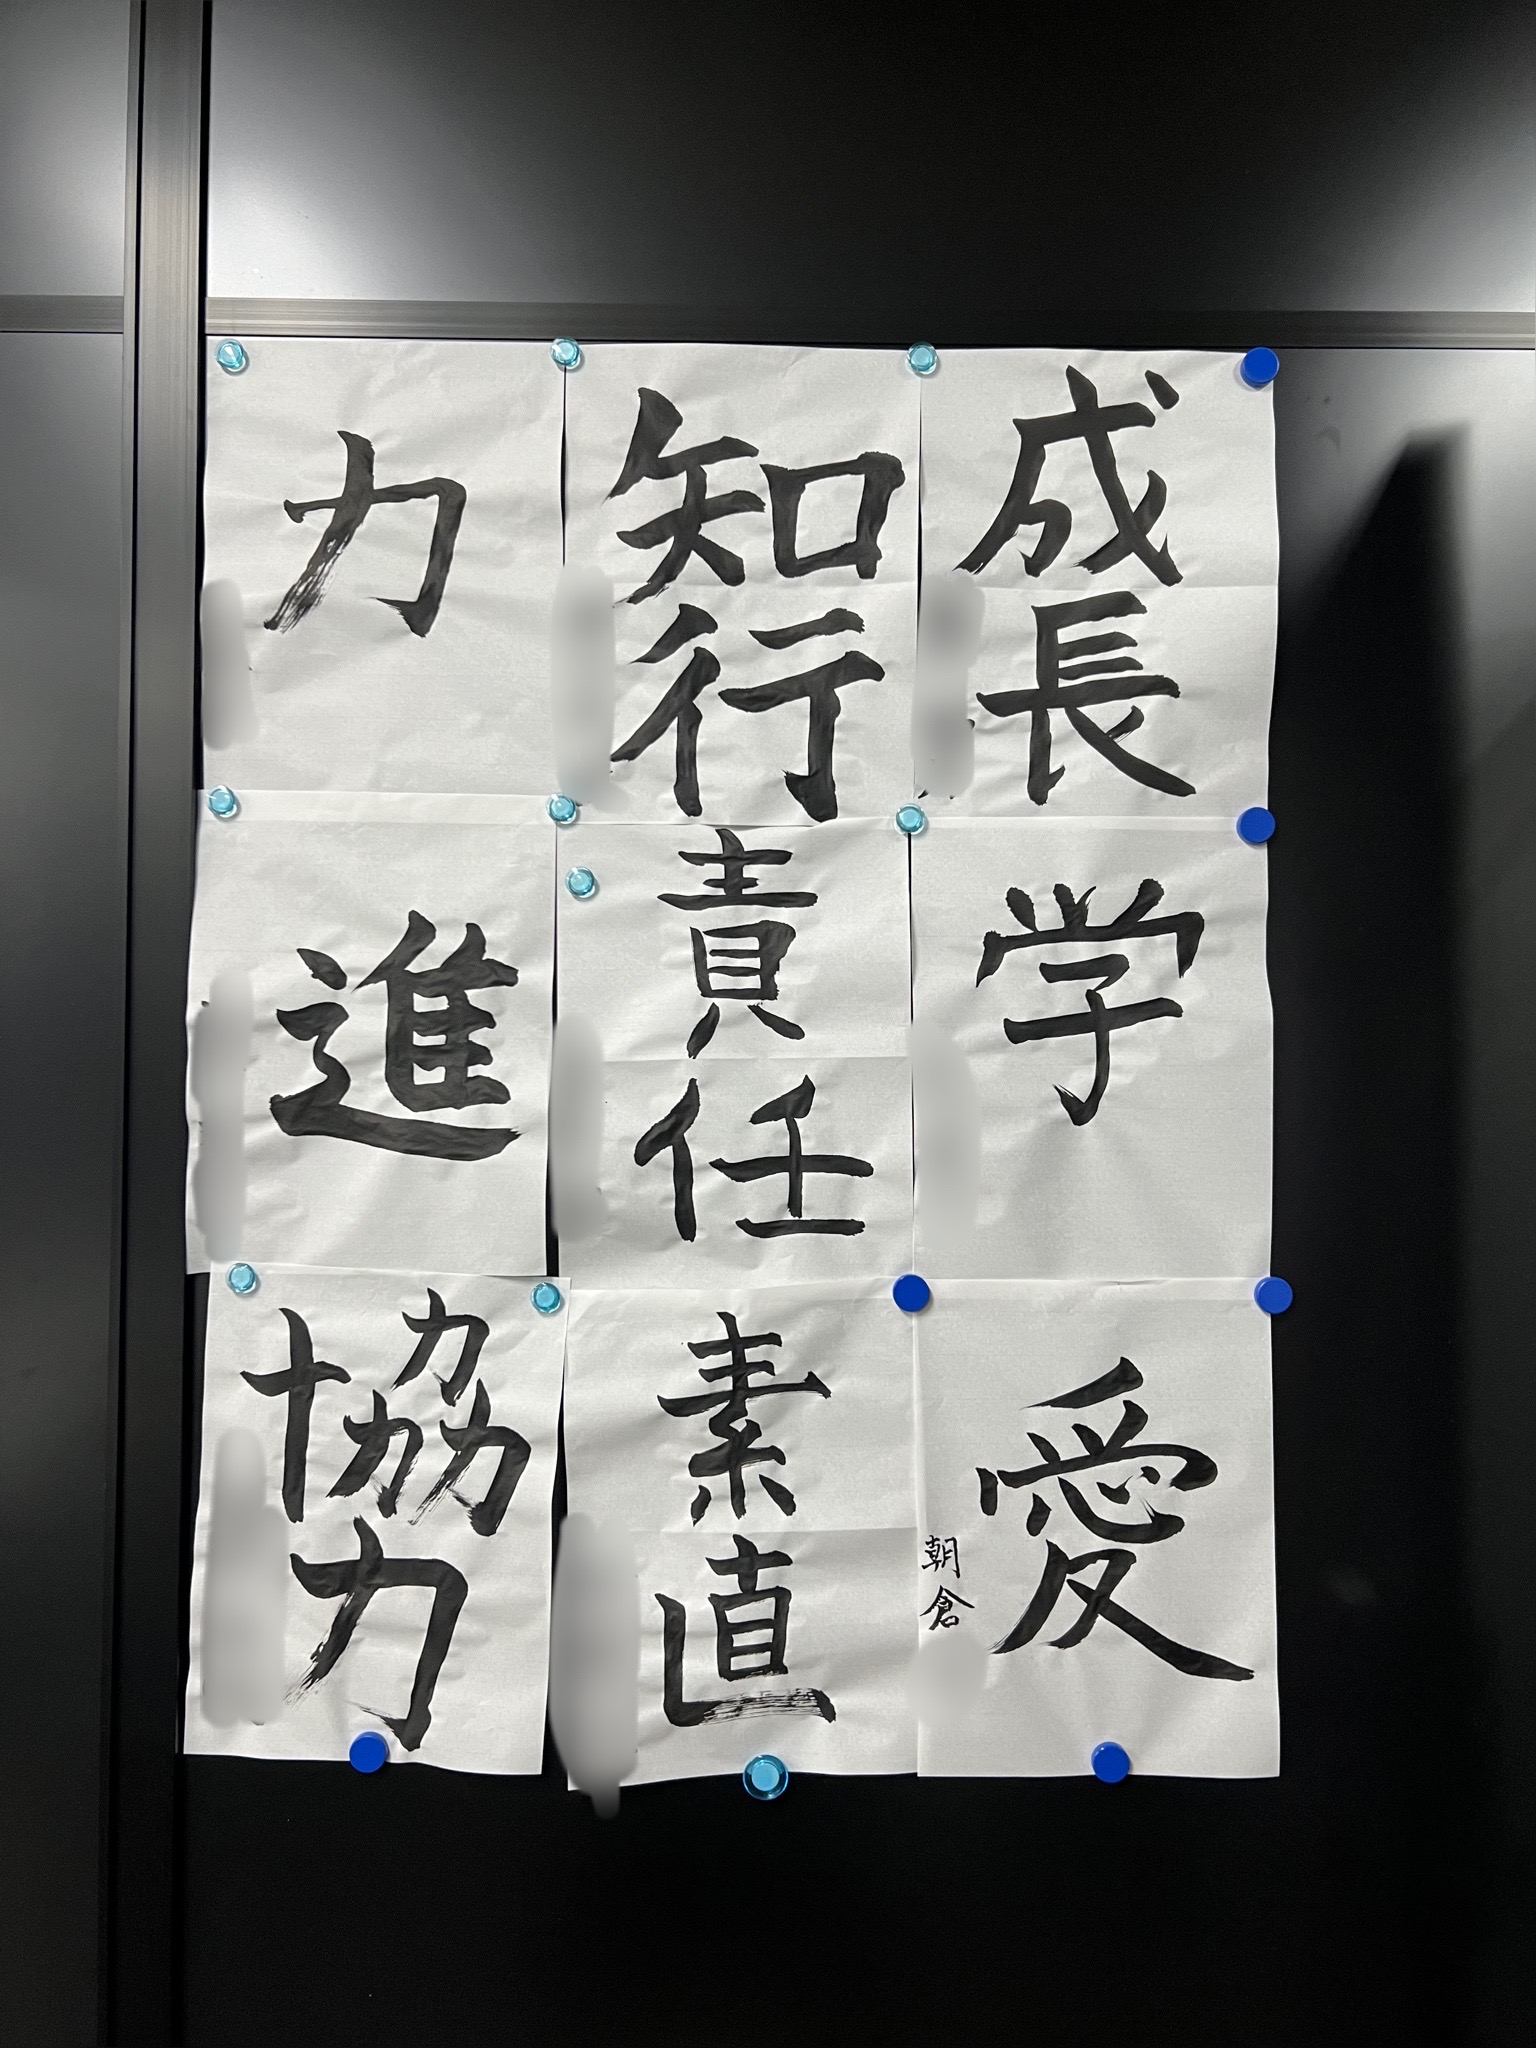 成長
学
愛
朝倉
知行
責任
素直
力
進
協力